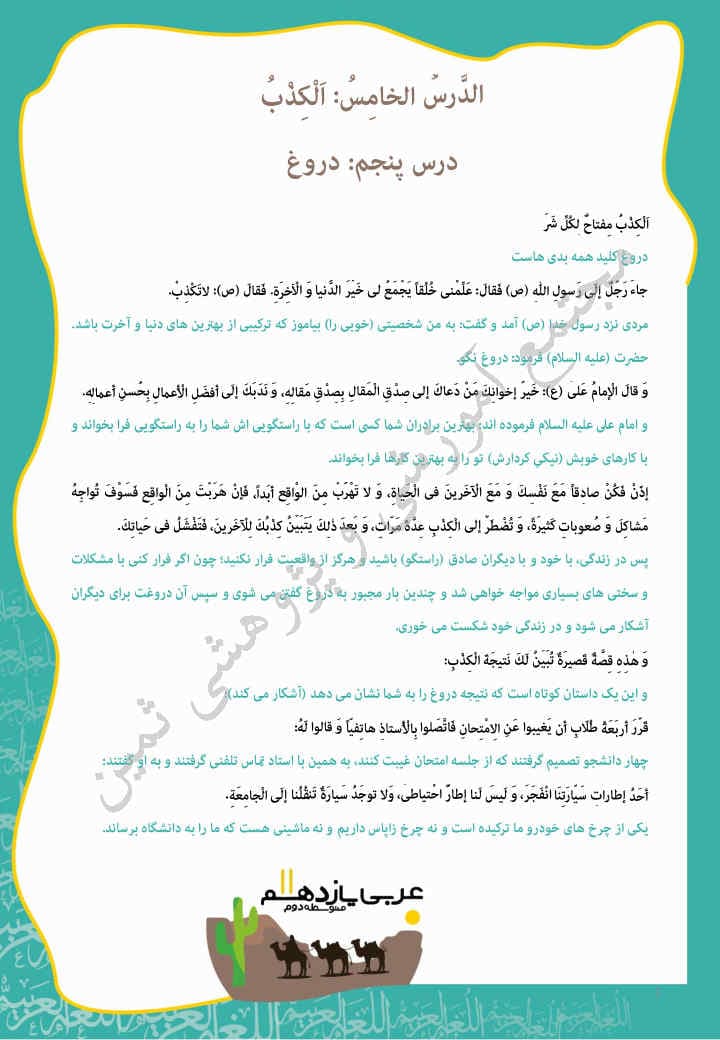 الدَّرسُ الخامِسُ: اَلْكِذْبُ
درس پنجم: دروغ
اَلْكِذْبُ مِفتاحٌ لِكُلِّ شَرّ
دروغ کلید همه بدی هاست
جاءَ رَجُلٌ إلَی رَسولِ اللّٰهِ (ص) فَقالَ: عَلِّمْنی خُلُقاً یَجْمَعُ لی خَیرَ الدُّنیا وَ الْآخِرَةِ. فَقالَ (ص): لاتَکْذِبْ.
مردی نزد رسول خدا (ص) آمد و گفت: به من شخصیتی (خوبی را) بیاموز که ترکیبی از بهترین های دنیا و آخرت باشد.
حضرت (علیه السلام) فرمود: دروغ نگو.
وَ قالَ الْإمامُ عَلی (ع): خَیرُ إخوانِكَ مَنْ دَعاكَ إلی صِدْقِ الْمَقالِ بِصِدْقِ مَقالِهِ، وَ نَدَبَكَ إلَی أفضَلِ الْأعمالِ بِحُسنِ أعمالِهِ.
و امام علی علیه السلام فرموده اند: بهترین برادران شما کسی است که با راستگویی اش شما را به راستگویی فرا بخواند و
با کارهای خویش (نیکیِ کردارش) تو را به بهترین کارها فرا بخواند.
إذَنْ فَکُنْ صادِقاً مَعَ نَفْسِكَ وَ مَعَ الْآخَرینَ فی الْحَیاةِ، وَ لا تَهْرُبْ مِنَ الْواقِعِ أبَداً، فَإنْ هَرَبْتَ مِنَ الْواقِعِ فَسَوْفَ تُواجِهُ
مَشاکِلَ وَ صُعوباتٍ کَثیرَةً، وَ تُضْطَرُّ إلَی الْکِذْبِ عِدَّةَ مَرّاتٍ، وَ بَعدَ ذٰلِكَ یَتَبَیَّنُ کِذْبُكَ لِلْآخَرینَ، فَتَفْشَلُ فی حَیاتِكَ.
پس در زندگی، با خود و با دیگران صادق (راستگو) باشید و هرگز از واقعیت فرار نکنید؛ چون اگر فرار کنی با مشکلات
و سختی های بسیاری مواجه خواهی شد و چندین بار مجبور به دروغ گفتن می شوی و سپس آن دروغت برای دیگران
آشکار می شود و در زندگی خود شکست می خوری.
وَ هٰذِهِ قِصَّةٌ قَصیرَةٌ تُبَیِّنُ لَكَ نَتیجَةَ الْکِذْبِ:
و این یک داستان کوتاه است که نتیجه دروغ را به شما نشان می دهد (آشکار می کند):
قَرَّرَ أربَعَةُ طُلّابٍ أن یَغیبوا عَنِ الاِمْتِحانِ فَاتَّصَلوا بِالْأُستاذِ هاتِفیّاً وَ قالوا لَهُ:
چهار دانشجو تصمیم گرفتند که از جلسه امتحان غیبت کنند، به همین با استاد تماس تلفنی گرفتند و به او گفتند:
أحَدُ إطاراتِ سَیّارَتِنَا انْفَجَرَ، وَ لَیسَ لَنا إطارٌ احْتیاطیّ، وَلا توجَدُ سَیارَةٌ تَنقُلُنا إلَی الْجامِعَةِ.
یکی از چرخ های خودرو ما ترکیده است و نه چرخ زاپاس داریم و نه ماشینی هست که ما را به دانشگاه برساند.
مجتمع آموزشی و پژوهشی ثمین
عربی یازدهم
متوسطه دوم